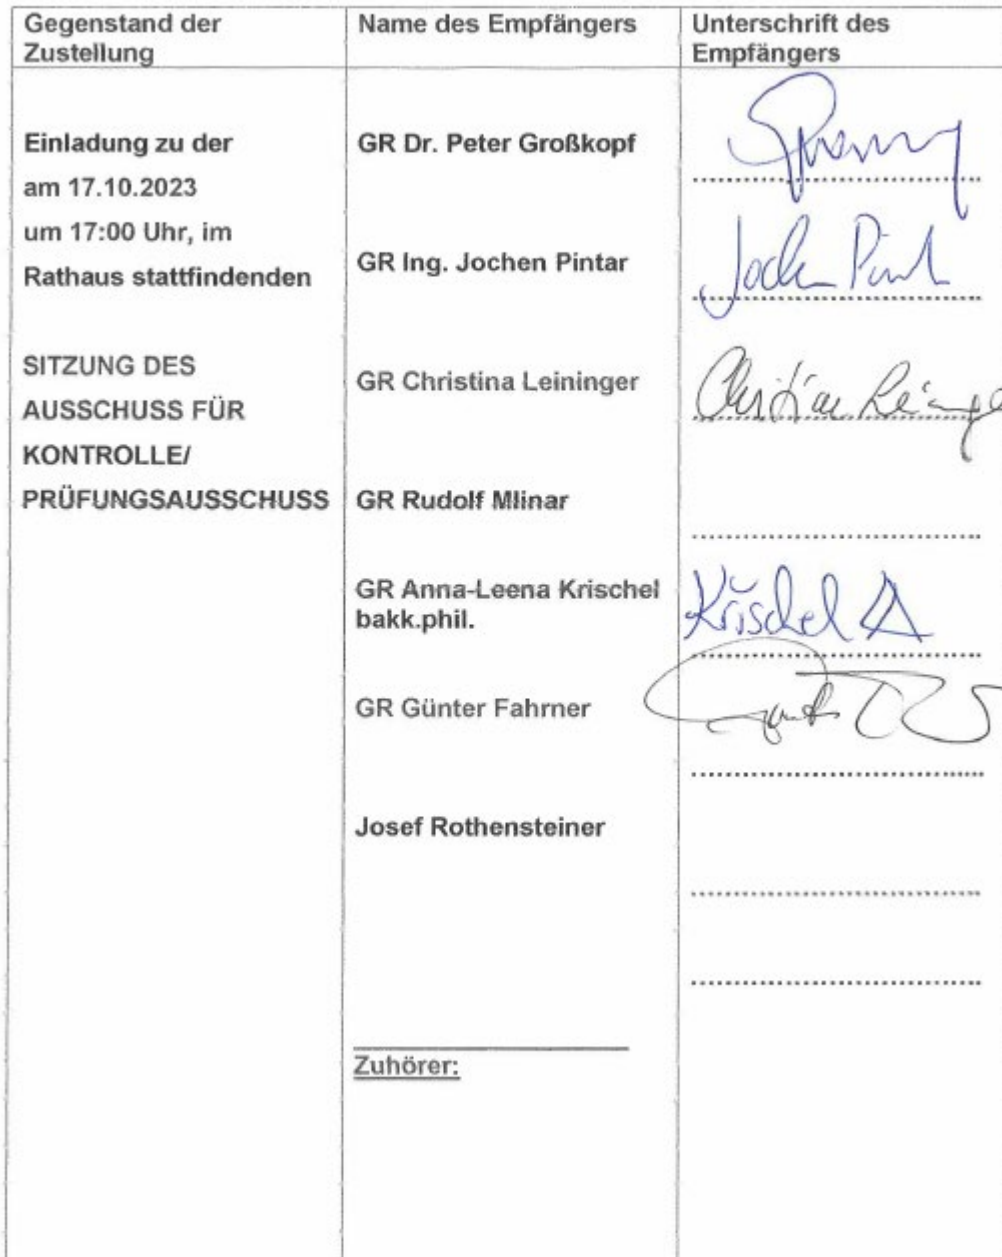 Gegenstand der
Zustellung
Name des Empfängers
Unterschrift des
Empfängers
Einladung zu der
am 17.10.2023
um 17:00 Uhr, im
Rathaus stattfindenden
SITZUNG DES
AUSSCHUSS FÜR
KONTROLLE/
PRÜFUNGSAUSSCHUSS
GR Dr. Peter Großkopf
GR Ing. Jochen Pintar
Jochen Pint
GR Christina Leininger
GR Rudolf Mlinar
GR Anna-Leena Krischel
bakk.phil.
Krischel A
GR Günter Fahrner
Josef Rothensteiner
Zuhörer: